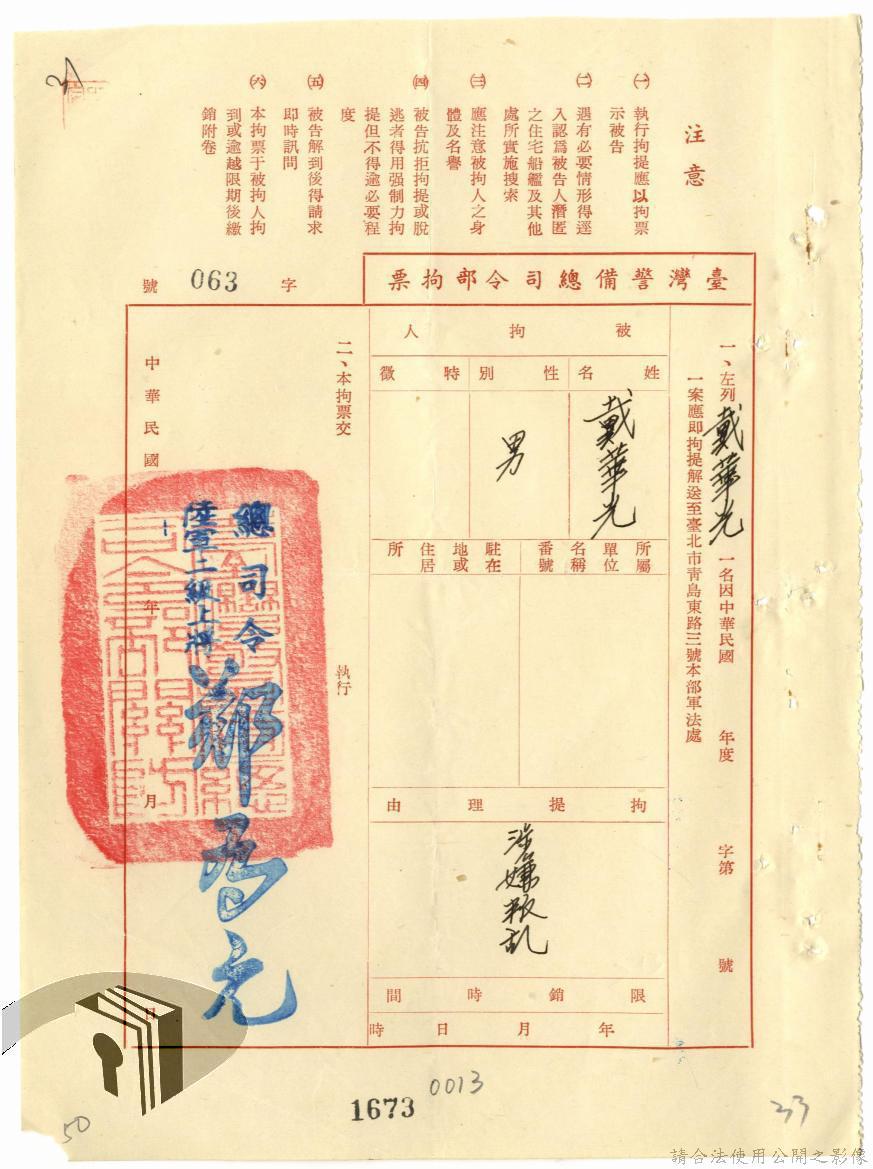 注意
㈠ 執行拘提應以拘票
示被告
㈡ 遇有必要情形得逕
入認爲被告人潛匿
之住宅船艦及其他
處所實施搜索
㈢ 應注意被拘人之身
體及名譽
㈣ 被告抗拒拘提或脫
逃者得用强制力拘
提但不得逾必要程
度
㈤ 被告解到後得請求
即時訊問
㈥ 本拘票于被拘人拘
到或逾越限期後繳
銷附卷
臺灣警備總司令部拘票
字 063 號
一、左列戴華光一名因中華民國 年度 字第 號
一案應即拘提解送至臺北市青島東路三號本部軍法處
被拘人
姓名
性別
特徵
戴華光
男
所屬單位名稱番號
駐在地或住居所
拘提理由
涉嫌叛乱
限銷時間
年 月 日 時
二、本拘票交 執行
總司令
陸軍二級上將
鄭為元
中華民國 年 月 日
1673
0013
50
請合法使用公開之影像